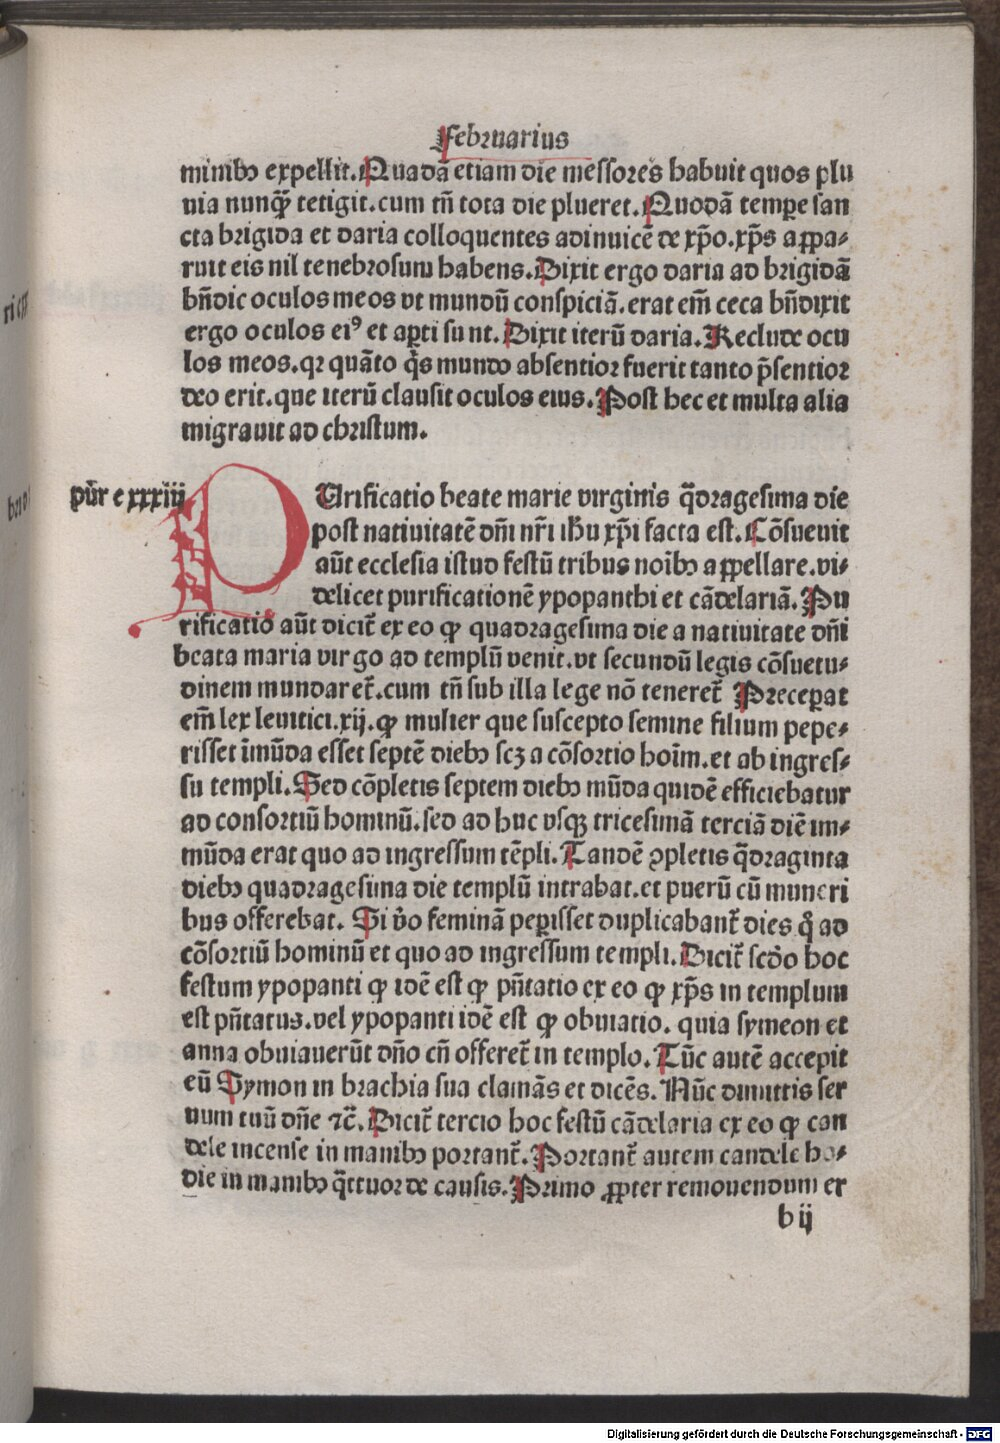 Februarius
minibꝫ expellit. Quadā etiam die messores habuit quos plu
uia nunqͣꝫ tetigit. cum tn̄ tota die plueret. Quodā tempe san
cta brigida et daria colloquentes adinuicē de xp̄o. xp̄s appa⸗
ruit eis nil tenebrosum habens. Dixit ergo daria ad brigidā
bn̄dic oculos meos vt mundū conspiciā. erat em̄ ceca bn̄dixit
ergo oculos eiꝰ et apti sunt. Dixit iterū daria. Reclude ocu
los meos. qr quāto qͥs mundo absentior fuerit tanto p̄sentior
deo erit. que iterū clausit oculos eius. Post hec et multa alia
migrauit ad christum.
pūr e xxxiij
PUrificatio beate marie virginis qͣdragesima die
post natiuitatē dn̄i nr̄i ihū xp̄i facta est. Cōsueuit
aūt ecclesia istud festū tribus noībꝫ appellare. vi⸗
delicet purificationē ypopanthi et cādelariā. Pu
rificatio aūt dicit᷑ ex eo ꝙ quadragesima die a natiuitate dn̄i
beata maria virgo ad templū venit. vt secundū legis cōsuetu⸗
dinem mundaret᷑. cum tn̄ sub illa lege nō teneret᷑ Precepat
em̄ lex leuitici. xij. ꝙ mulier que suscepto semine filium pepe⸗
risset īmūda esset septē diebꝫ scꝫ a cōsortio hoīm. et ab ingres⸗
su templi. Sed cōpletis septem diebꝫ mūda quidē efficiebatur
ad consortiū hominū. sed ad huc vsqꝫ tricesimā terciā diē im⸗
mūda erat quo ad ingressum tēpli. Tandē ꝯpletis qͣdraginta
diebꝫ quadragesima die templū intrabat. et puerū cū muneri
bus offerebat. Si v̄o feminā pepisset duplicabant᷑ dies qͦ ad
cōsortiū hominū et quo ad ingressum templi. Dicit᷑ scd̄o hoc
festum ypopanti ꝙ idē est ꝙ pn̄tatio ex eo ꝙ xp̄s in templum
est pn̄tatus. vel ypopanti idē est ꝙ obuiatio. quia symeon et
anna obuiauerūt dn̄o cū offeret᷑ in templo. Tūc autē accepit
eū Symon in brachia sua clamās et dicēs. Nūc dimittis ser
uum tuū dn̄e ⁊c̄. Dicit᷑ tercio hoc festū cādelaria ex eo ꝙ can
dele incense in manibꝫ portant᷑. Portant᷑ autem candele ho⸗
die in manibꝫ qͣttuor de causis. Primo ꝓpter remouendum er
b ij
Digitalisierung gefördert durch die Deutsche Forschungsgemeinschaft - DFG